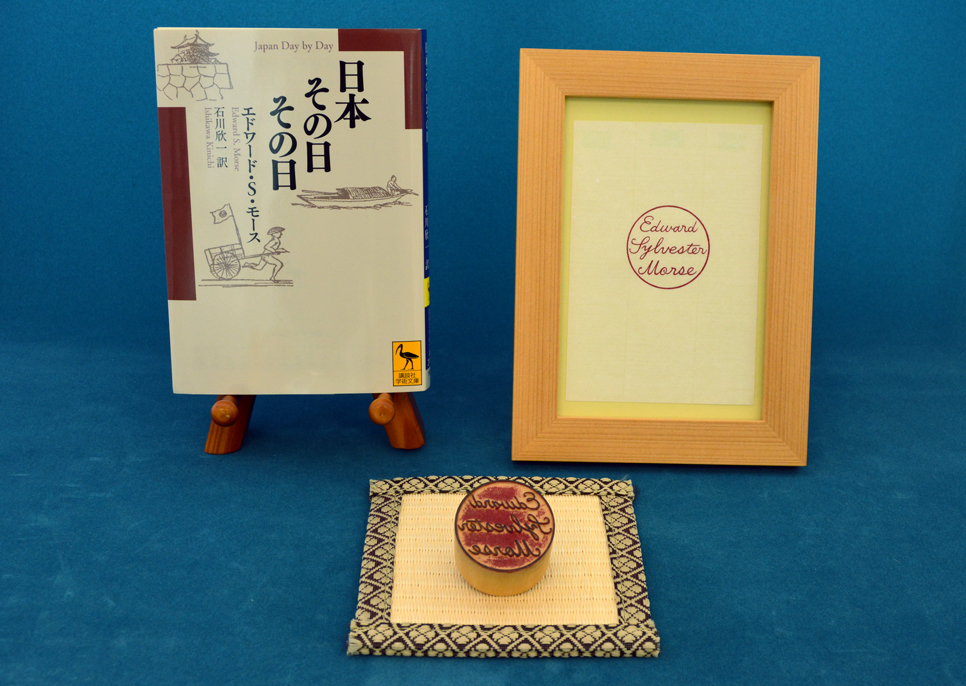 Japan Day by Day
日本
その日
その日
エドワード・S・モース
Edward S. Morse
石川欣一 訳
Ishikawa Kinichi
講談社
学術文庫
Edward
Sylvester
Morse
Edward
Sylvester
Morse